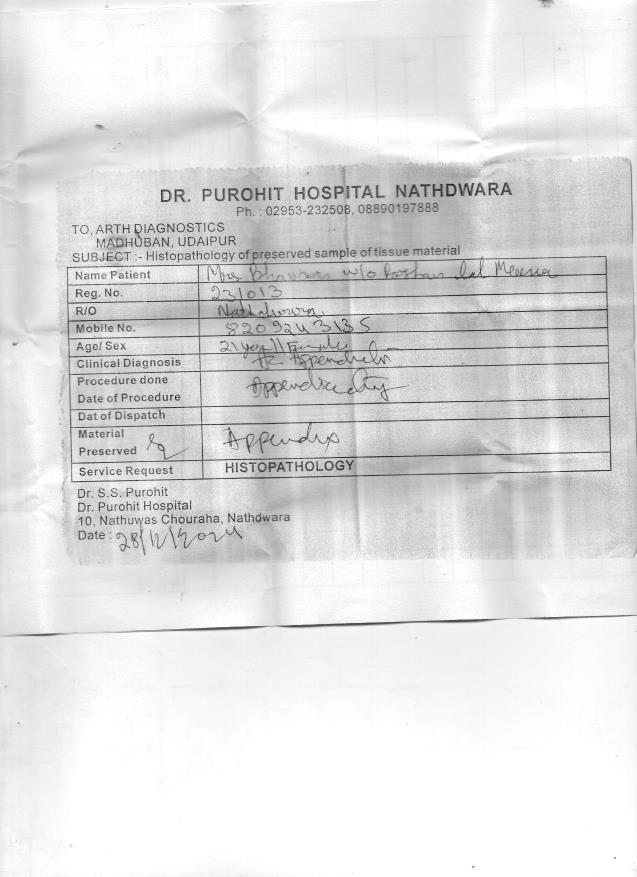 DR. PUROHIT HOSPITAL NATHDWARA
Ph. : 02953-232508, 08890197888
TO, ARTH DIAGNOSTICS
MADHUBAN, UDAIPUR
SUBJECT :- Histopathology of preserved sample of tissue material
Name Patient Mrs w/o lal Meena
Reg. No. 231013
R/O Nathdwara
Mobile No. 8209243135
Age/ Sex 21 year / Female
Clinical Diagnosis Ac Appendicitis
Procedure done Appendicectomy
Date of Procedure
Dat of Dispatch
Material Appendix
Preserved
Service Request HISTOPATHOLOGY
Dr. S.S. Purohit
Dr. Purohit Hospital
10, Nathuwas Chouraha, Nathdwara
Date : 28/12/2024